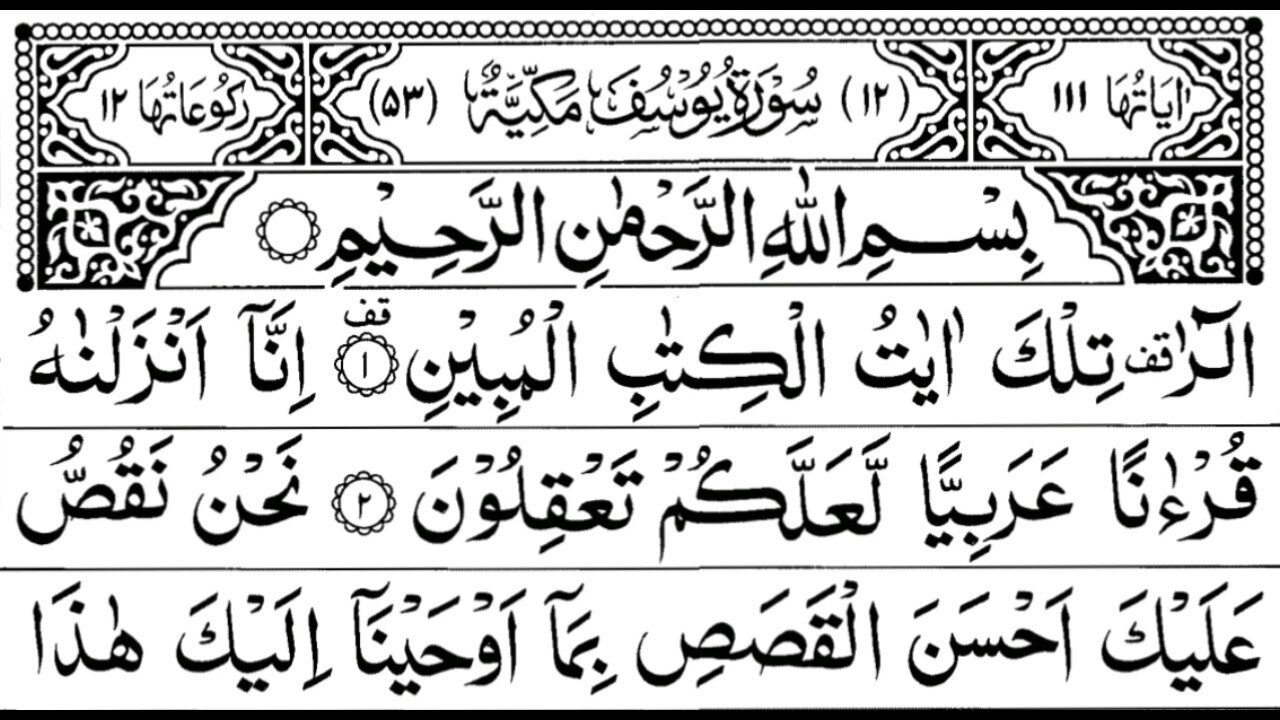 اٰيَاتُهَا ١١١ (١٢) سُوْرَةُ يُوْسُفَ مَكِّيَّةٌ (٥٣) رُكُوْعَاتُهَا ١٢
بِسْمِ اللّٰهِ الرَّحْمٰنِ الرَّحِيْمِ
الٓرٰ قف تِلْكَ اٰيٰتُ الْكِتٰبِ الْمُبِيْنِ ١ قف اِنَّاۤ اَنْزَلْنٰهُ
قُرْءٰنًا عَرَبِيًّا لَّعَلَّكُمْ تَعْقِلُوْنَ ٢ نَحْنُ نَقُصُّ
عَلَيْكَ اَحْسَنَ الْقَصَصِ بِمَاۤ اَوْحَيْنَاۤ اِلَيْكَ هٰذَا